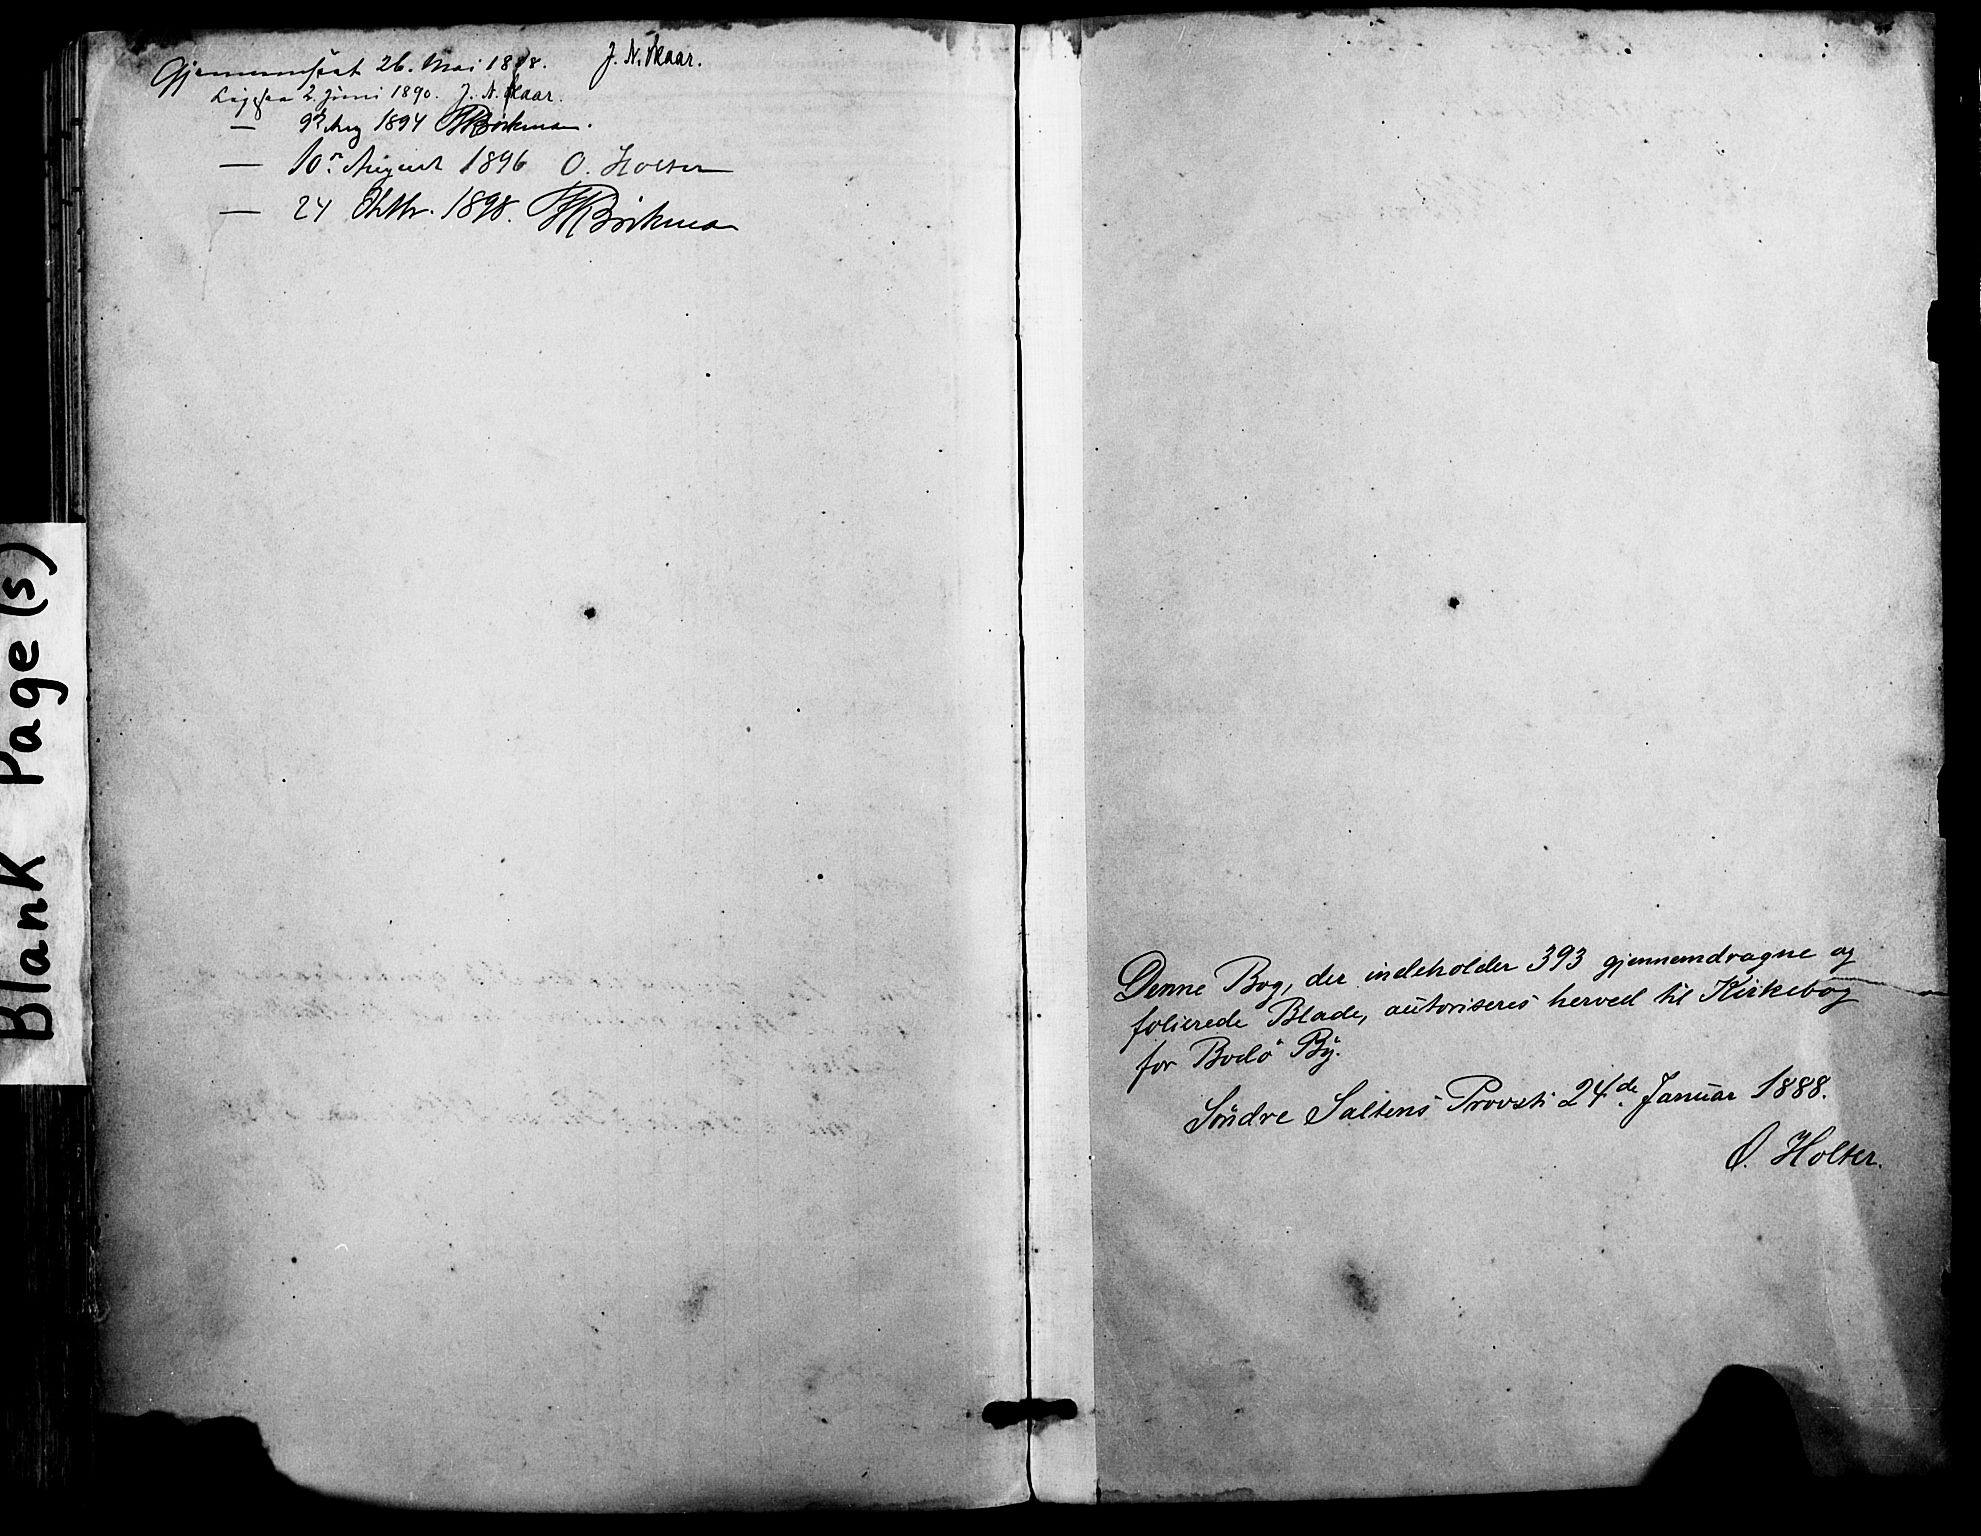 Gjennemseet 26. Mai 1888. J. N. Skaar.
Ligesaa 2. Juni 1890. J. N. Skaar.
— 9d Aug 1894 Böckman.
— 10n August 1896 O. Holter
— 24 Oktbr. 1898. Böckman
Denne Bog, der indeholder 393 gjennemdragne og
folierede Blade, autoriseres herved til Kirkebog
for Bodö By.
Söndre Saltens Provsti 24de Januar 1888.
O. Holter.
Blank Page(s)